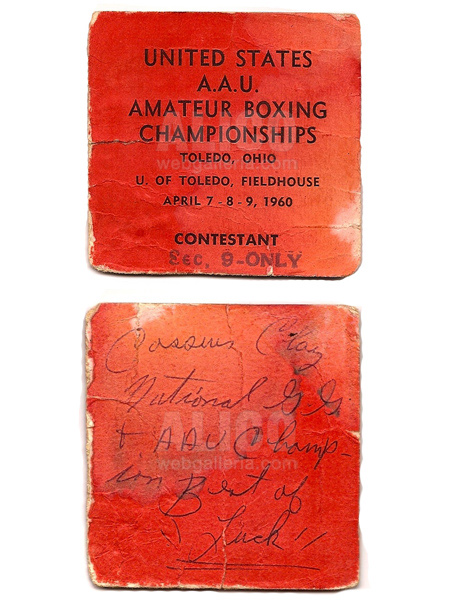 UNITED STATES
A.A.U.
AMATEUR BOXING
CHAMPIONSHIPS
TOLEDO, OHIO
U. OF TOLEDO, FIELDHOUSE
APRIL 7 - 8 - 9, 1960
CONTESTANT
Sec. 9-ONLY
Cassius Clay
National G G
+ AAU Champ-
ion Best of
"Luck"
ALICO
webgalleria.com
ALICO
webgalleria.com